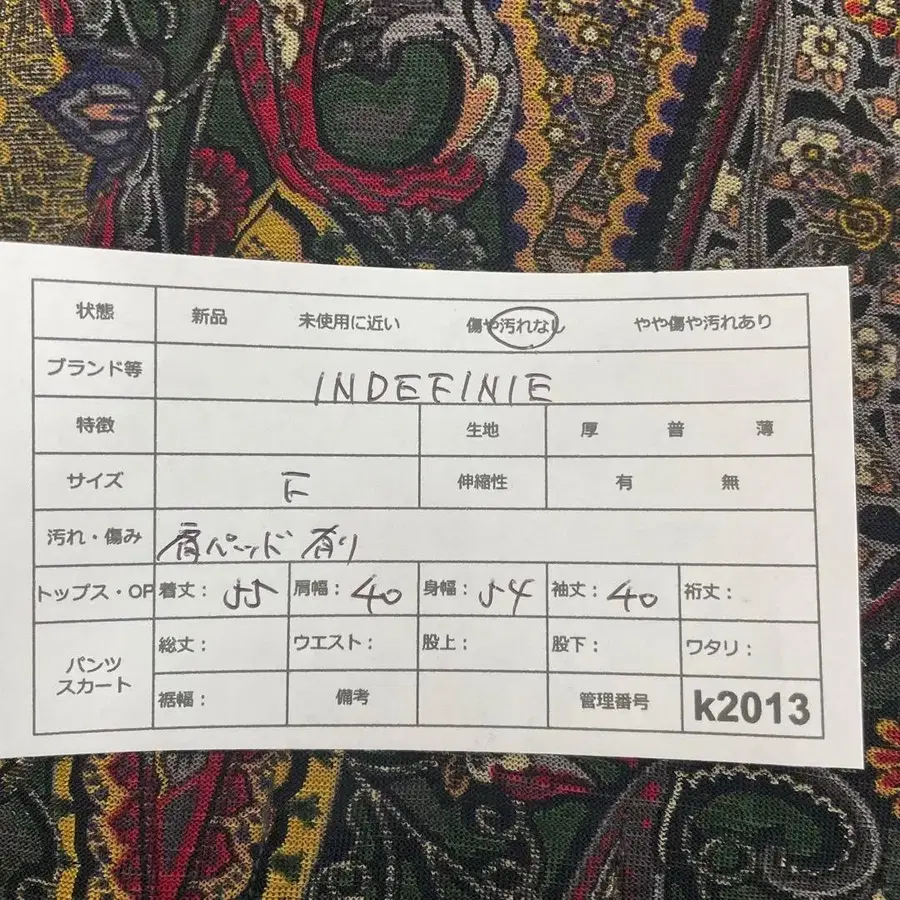 状態 新品 未使用に近い 傷や汚れなし やや傷や汚れあり
ブランド等 INDEFINIE
特徴 生地 厚 普 薄
サイズ F 伸縮性 有 無
汚れ・傷み 肩パッド有り
トップス・OP 着丈: 55 肩幅: 40 身幅: 54 袖丈: 40 裄丈:
パンツ スカート 総丈: ウエスト: 股上: 股下: ワタリ:
裾幅: 備考 管理番号 k2013